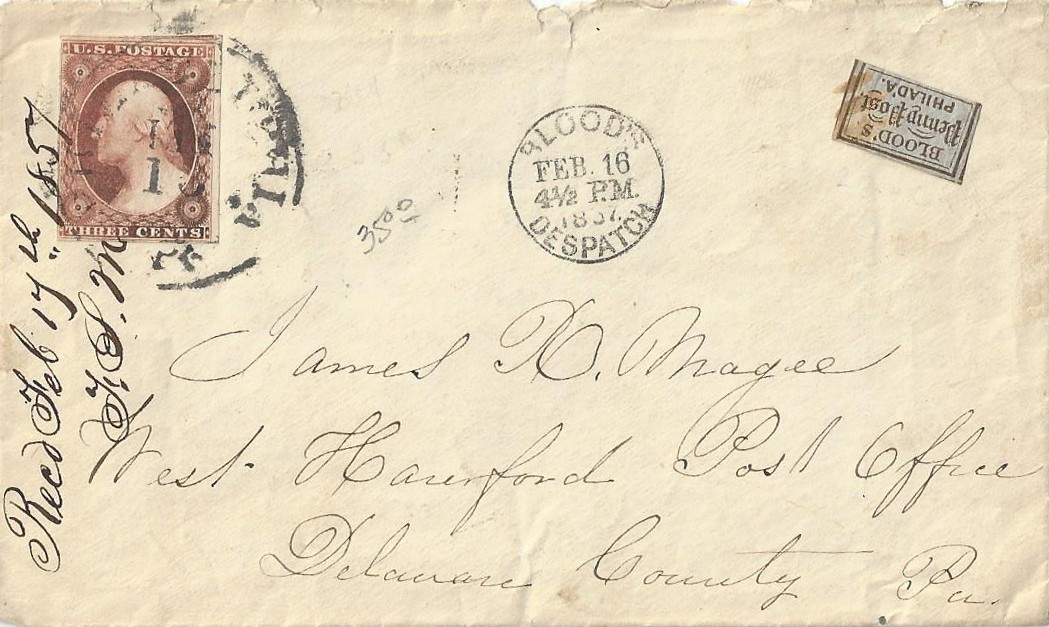 U.S. POSTAGE
THREE CENTS
1
Phila
BLOOD'S
FEB. 16
4½ P.M.
1857
DESPATCH
BLOOD'S
Penny Post
PHILAD'A.
3500
Recd Feb 17th 1857
James H. Magee
West Haverford Post Office
Delaware County Pa.